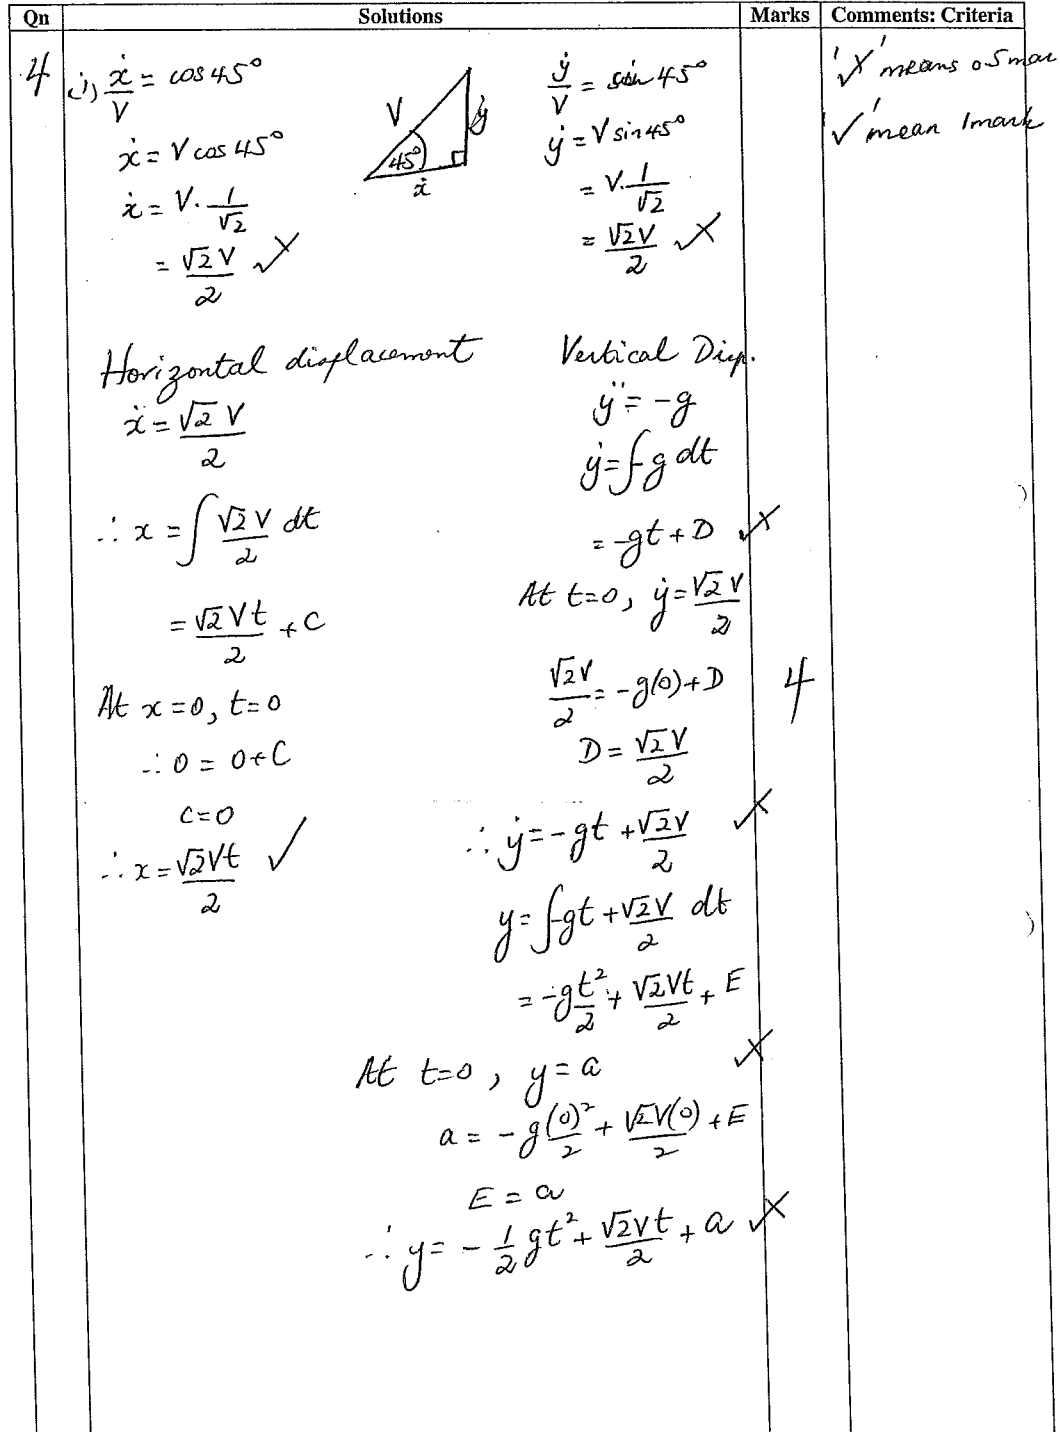 Qn Solutions Marks Comments: Criteria
4 i) ẋ/V = cos 45°
ẋ = V cos 45°
ẋ = V. 1/√2
= √2 V/2 ✓✗
V
45°
ẏ
ẋ
ẏ/V = sin 45°
ẏ = V sin 45°
= V. 1/√2
= √2V/2 ✓✗
'✓✗' means 0.5 mar
'✓' mean 1mark
Horizontal displacement
ẋ = √2 V/2
∴ x = ∫ √2 V/2 dt
= √2 Vt/2 + C
At x = 0, t = 0
∴ 0 = 0 + C
C = 0
∴ x = √2Vt/2 ✓
Vertical Disp.
ÿ = -g
ẏ = ∫-g dt
= -gt + D ✓✗
At t=0, ẏ = √2 V/2
√2V/2 = -g(0) + D
D = √2V/2
∴ ẏ = -gt + √2V/2 ✓✗
y = ∫-gt + √2V/2 dt
= -g t²/2 + √2Vt/2 + E
At t=0, y = a ✓✗
a = -g (0)²/2 + √2V(0)/2 + E
E = a
∴ y = - 1/2 gt² + √2Vt/2 + a ✓✗
4